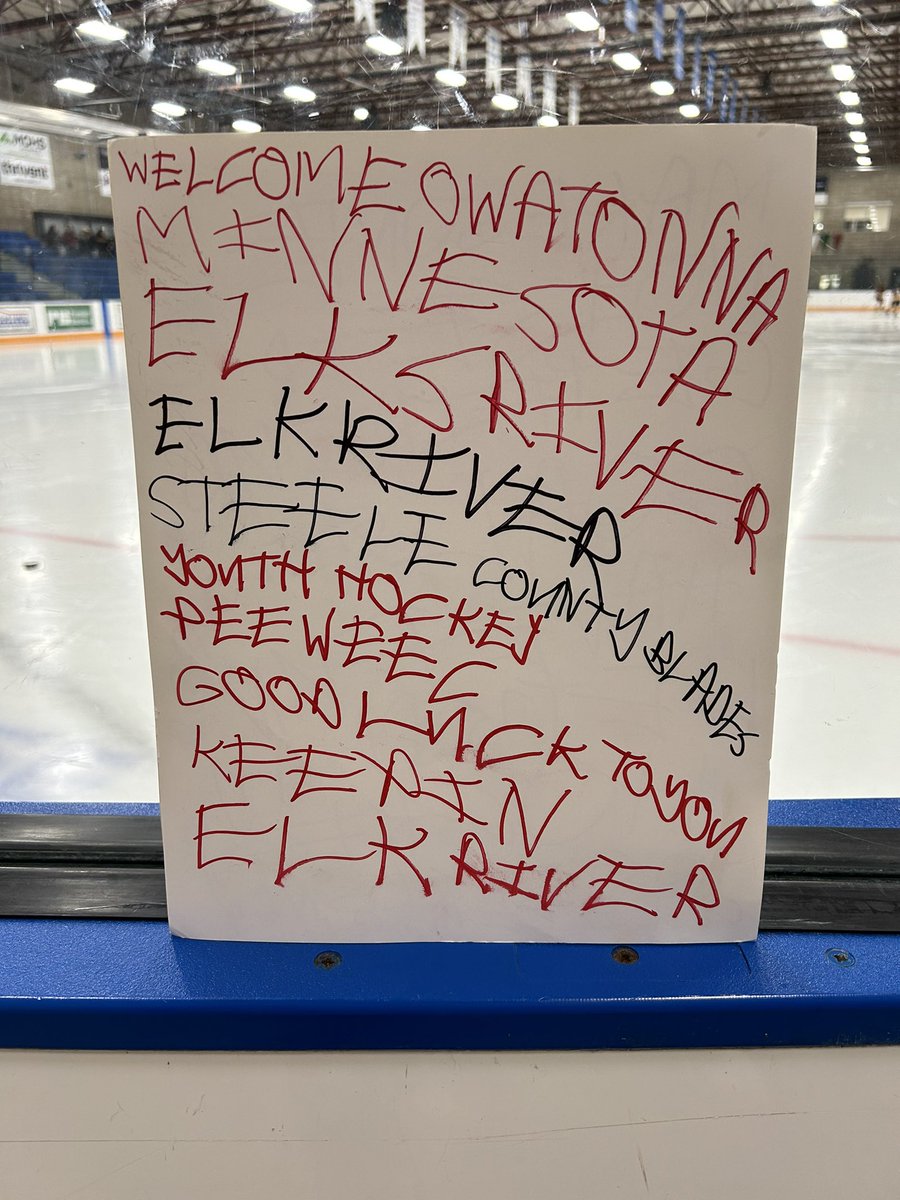 WELCOME OWATONNA
MINNESOTA
ELKS RIVER
ELK RIVER
STEELE COUNTY BLADES
YOUTH HOCKEY
PEEWEE C
GOOD LUCK TO YOU
KEEP IN
ELK RIVER